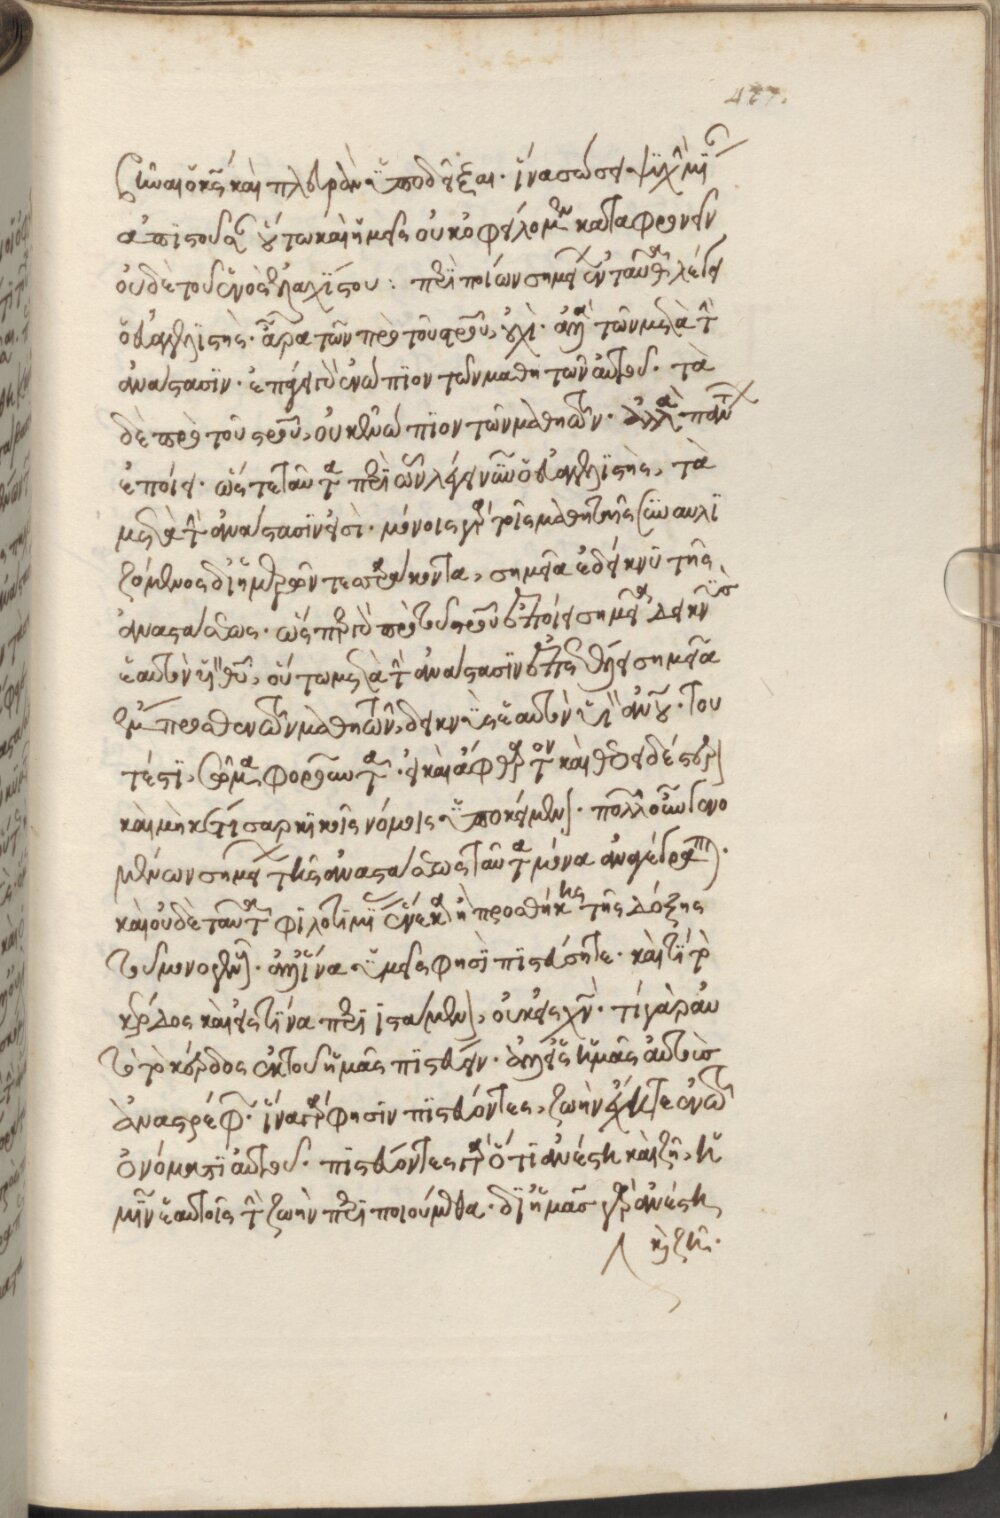 477.
καὶ ὁ κς καὶ πλευρὰν ὑποδεῖξαι. ἵνα σώσει ψυχὴν μίαν
ἀπιστοῦσαν οὕτω καὶ ἡμεῖς οὐκ ὀφείλομεν καταφρονεῖν
οὐδὲ τοῦ ἑνὸς ἐλαχίστου: περὶ ποίων σημείων ἐνταῦθα λέγει
ὁ εὐαγγελιστής. ἆρα τῶν πρὸ τοῦ σταυροῦ, οὐχί. ἀλλὰ τῶν μετὰ τὴν
ἀνάστασιν. ἐπάγει γὰρ ἐνώπιον τῶν μαθητῶν αὐτοῦ. τὰ
δὲ πρὸ τοῦ σταυροῦ, οὐκ ἐνώπιον τῶν μαθητῶν. ἀλλὰ πάντων
ἐποίει. ὥστε ταῦτα περὶ ὧν λέγει νῦν ὁ εὐαγγελιστὴς, τὰ
μετὰ τὴν ἀνάστασίν εἰσι. μόνοις γὰρ τοῖς μαθηταῖς συναυλι
ζόμενος δι' ἡμερῶν τεσσαράκοντα, σημεῖα ἐδείκνυ τῆς
ἀναστάσεως. ὥσπερ γὰρ πρὸ τοῦ σταυροῦ ἐποίει σημεῖα δεικνὺς
ἑαυτὸν υἱὸν θεοῦ, οὕτω μετὰ τὴν ἀνάστασιν ἐπετέλει σημεῖα
ἔμπροσθεν τῶν μαθητῶν, δεικνὺς ἑαυτὸν υἱὸν ἀνθρώπου. του
τέστι, σῶμα φοροῦντα. εἰ καὶ ἄφθαρτον καὶ θεοειδέστερον
καὶ μὴκέτι σαρκικοῖς νόμοις ὑποκείμενον. πολλῶν οὖν γενο
μένων σημείων τῆς ἀναστάσεως ταῦτα μόνα ἀναγέγραπται.
καὶ οὐδὲ ταῦτα φιλοτιμίας ἕνεκα ἢ προσθήκης τῆς δόξης
τοῦ μονογενοῦς. ἀλλ' ἵνα ὑμεῖς φησὶ πιστεύσητε. καὶ τί τὸ
κέρδος καὶ εἰς τίνα περιιστάμενον, οὐκ εἰς χν. τί γὰρ αὐ
τῷ τὸ κέρδος ἐκ τοῦ ἡμᾶς πιστεύειν. ἀλλ' εἰς ἡμᾶς αὐτοὺς
ἀναστρέφει. ἵνα γάρ φησιν πιστεύοντες, ζωὴν ἔχητε ἐν τῷ
ὀνόματι αὐτοῦ. πιστεύοντες γὰρ ὅτι ἀνέστη καὶ ζῇ, ἡ
μῖν ἑαυτοῖς τὴν ζωὴν περιποιούμεθα. δι' ἡμᾶς γὰρ ἀνέστη
καὶ ζῆ.